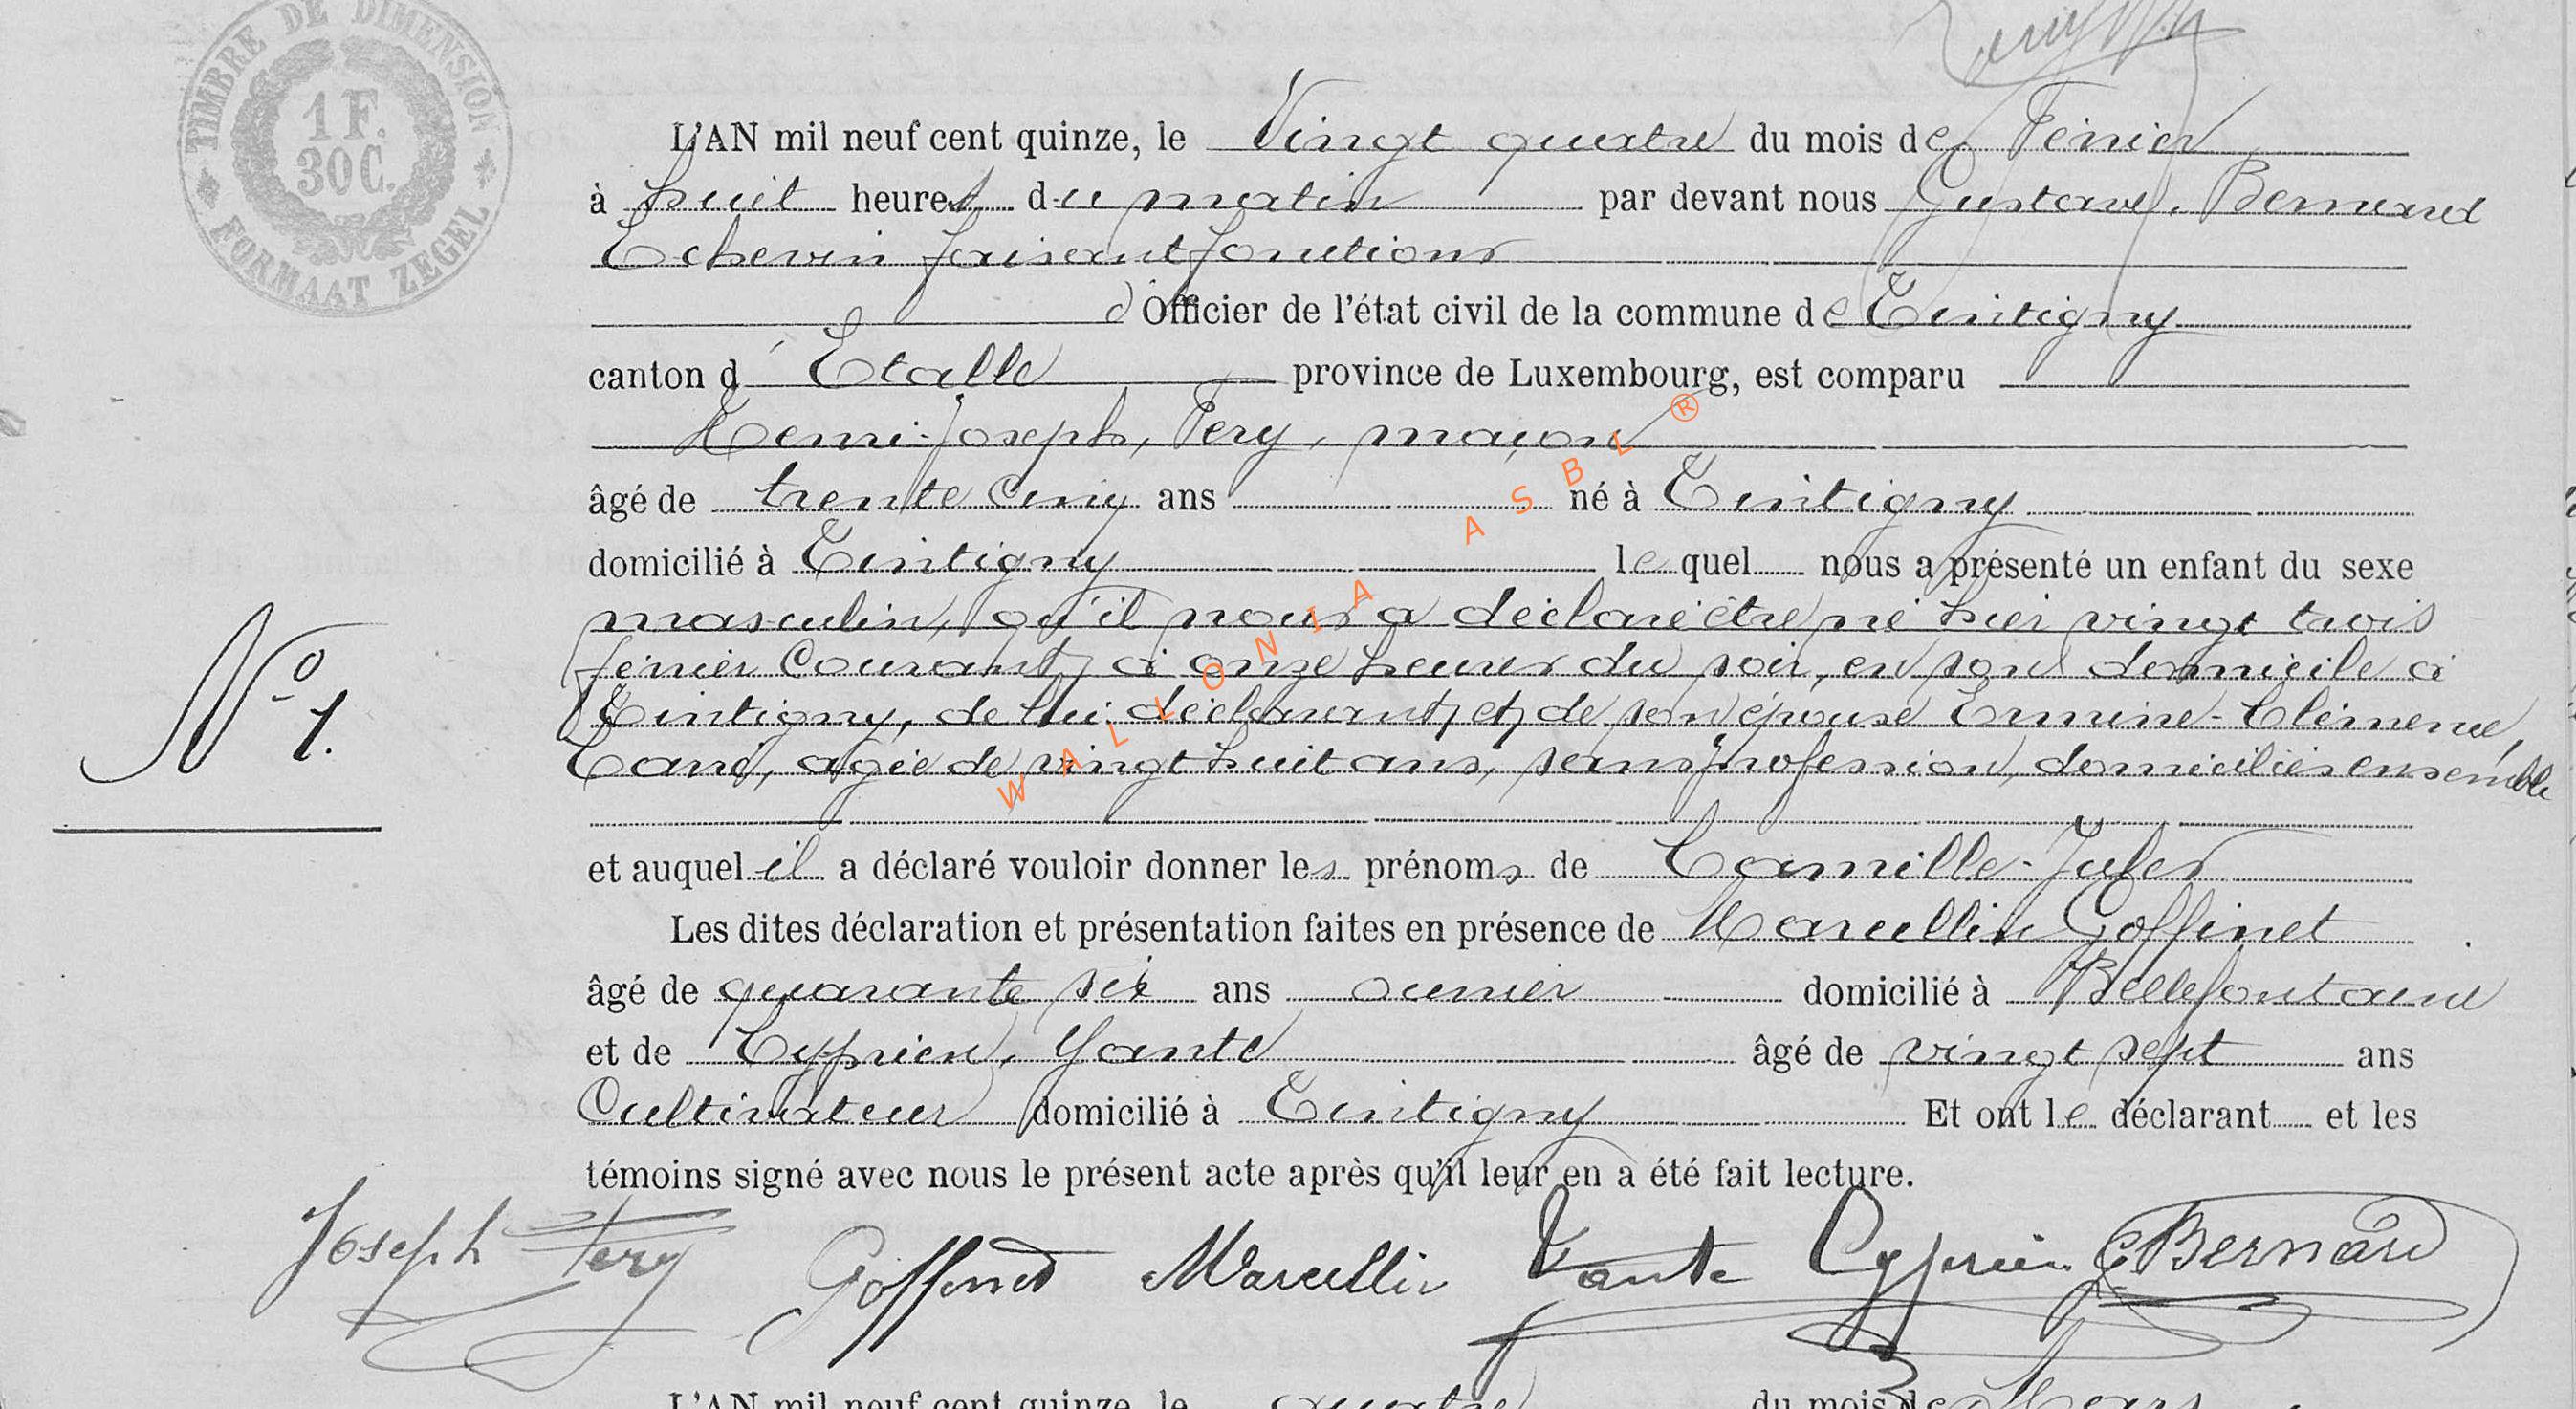 TIMBRE DE DIMENSION
1 F.
30 C.
FORMAAT ZEGEL
L'AN mil neuf cent quinze, le Vingt quatre du mois de Février
à huit heures du matin par devant nous Gustave, Bernard
Echevin faisant fonctions
d'Officier de l'état civil de la commune de Tintigny
canton d'Etalle province de Luxembourg, est comparu
Henri-Joseph, Fery, maçon
âgé de trente cinq ans né à Tintigny
domicilié à Tintigny lequel nous a présenté un enfant du sexe
masculin, qu'il nous a déclaré être né hier vingt trois
février courant, à onze heures du soir, en son domicile à
Tintigny, de lui déclarant, et de son épouse Ermine-Clémence,
agée de vingt huit ans, sans profession, domiciliés ensemble
N° 1.
et auquel il a déclaré vouloir donner les prénoms de Camille-Jules
Les dites déclaration et présentation faites en présence de Marcellin Goffinet
âgé de quarante six ans ouvrier domicilié à Bellefontaine
et de Cyprien, Yante âgé de vingt sept ans
Cultivateur domicilié à Tintigny Et ont le déclarant et les
témoins signé avec nous le présent acte après qu'il leur en a été fait lecture.
Joseph Fery Goffinet Marcellin Yante Cyprien G Bernard
L'AN mil neuf cent quinze, le quatre du mois de Mars
WALLONIA ASBL ®